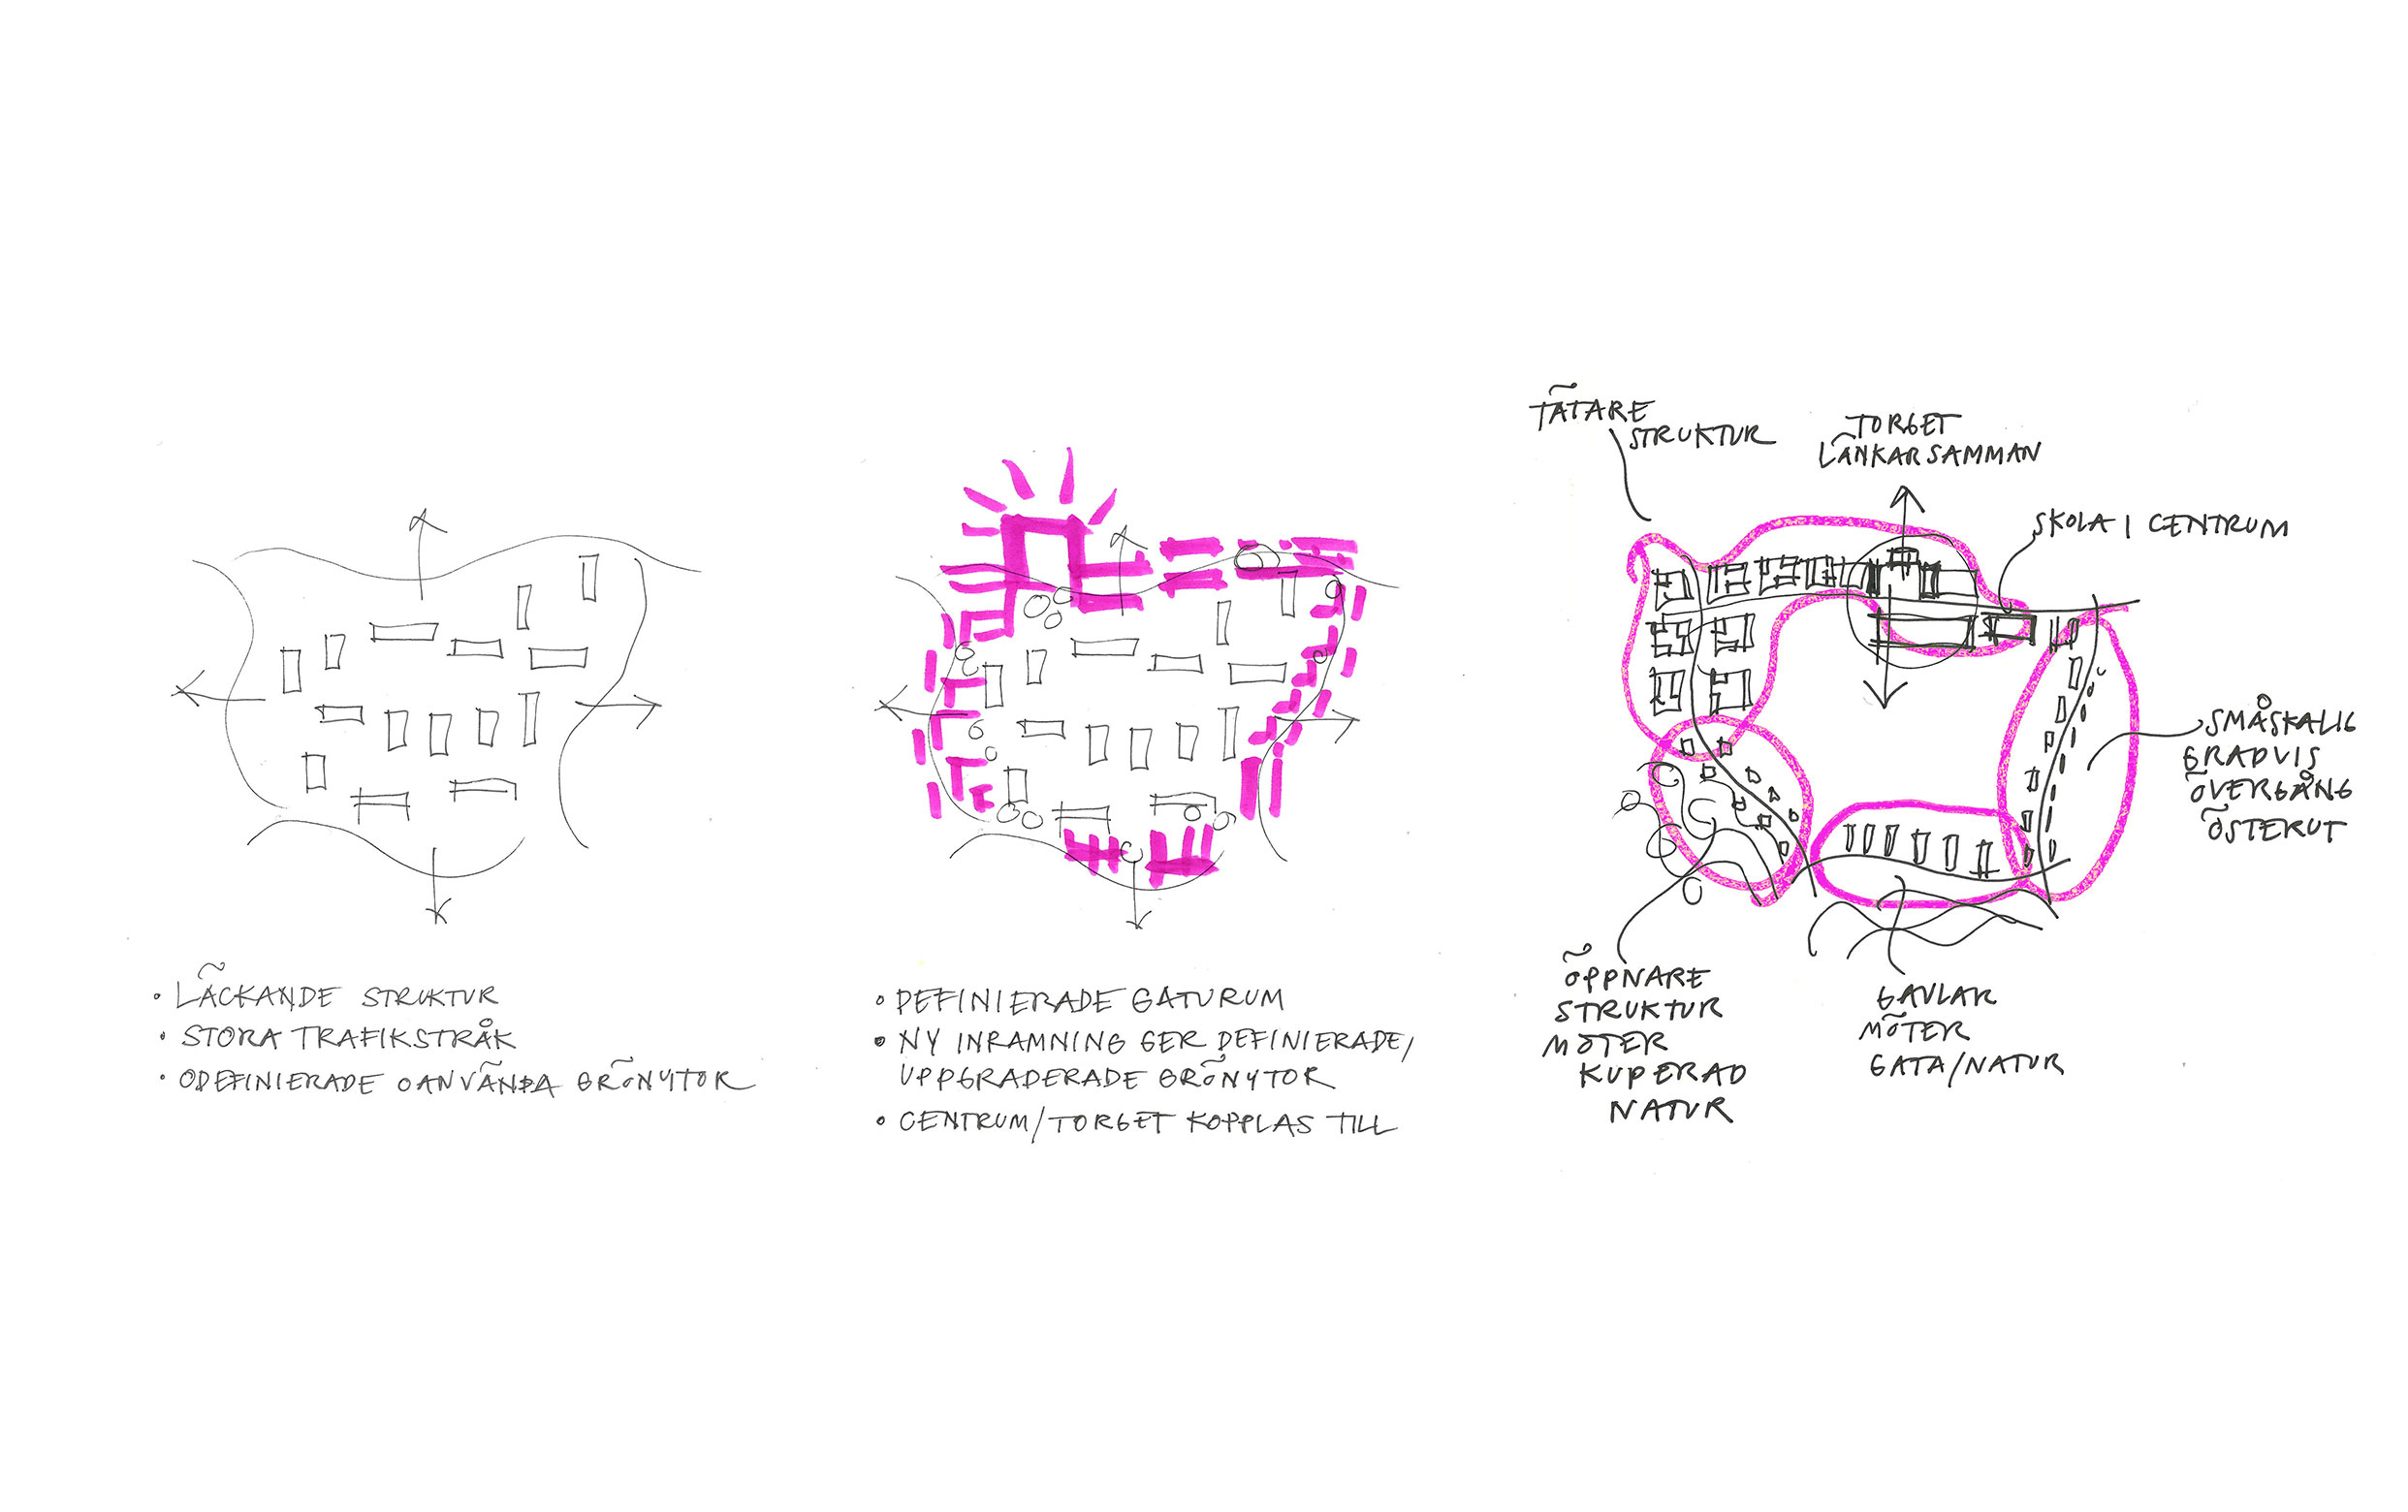 • LÄCKANDE STRUKTUR
• STORA TRAFIKSTRÅK
• ODEFINIERADE OANVÄNDA GRÖNYTOR
• DEFINIERADE GATURUM
• NY INRAMNING GER DEFINIERADE/
UPPGRADERADE GRÖNYTOR
• CENTRUM/TORGET KOPPLAS TILL
TÄTARE
STRUKTUR
TORGET
LÄNKAR SAMMAN
SKOLA I CENTRUM
SMÅSKALIG
GRADVIS
ÖVERGÅNG
ÖSTERUT
ÖPPNARE
STRUKTUR
MÖTER
KUPERAD
NATUR
GAVLAR
MÖTER
GATA/NATUR